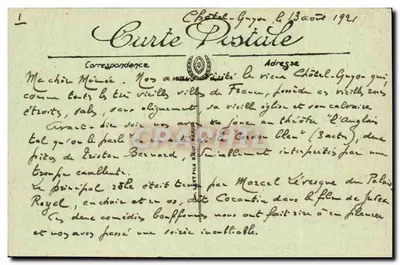 1
Châtel-Guyon le 13 août 1921
Carte Postale
Correspondance
Adresse
Ma chère Mémée - Nous avons visité le vieux Châtel-Guyon qui
comme toutes les très vieilles villes de France, possède ses vieilles rues
étroites, sales, sans alignement sa vieille église et son calvaire
Avant-hier soir nous avons vu jouer au théâtre "l'Anglais
tel qu'on le parle" et le "Cordon bleu" (3 actes), deux
pièces de Tristan Bernard,
troupe excellente.
Le principal rôle était tenu par Marcel Lévesque du Palais
Royal, en chair et en os, dit Cocantin dans le film de Judex
Ces deux comédies bouffonnes nous ont fait rire à en pleurer
et nous avons passé une soirée inoubliable.